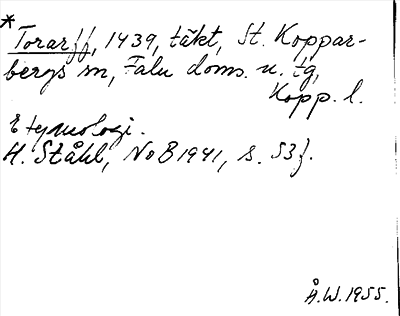 *
Torarff, 1439, täkt, St. Koppar-
bergs sn, Falu doms. n. tg,
Kopp. l.
Etymologi.
H. Ståhl, NoB 1941, s. 53f.
Å.W. 1955.